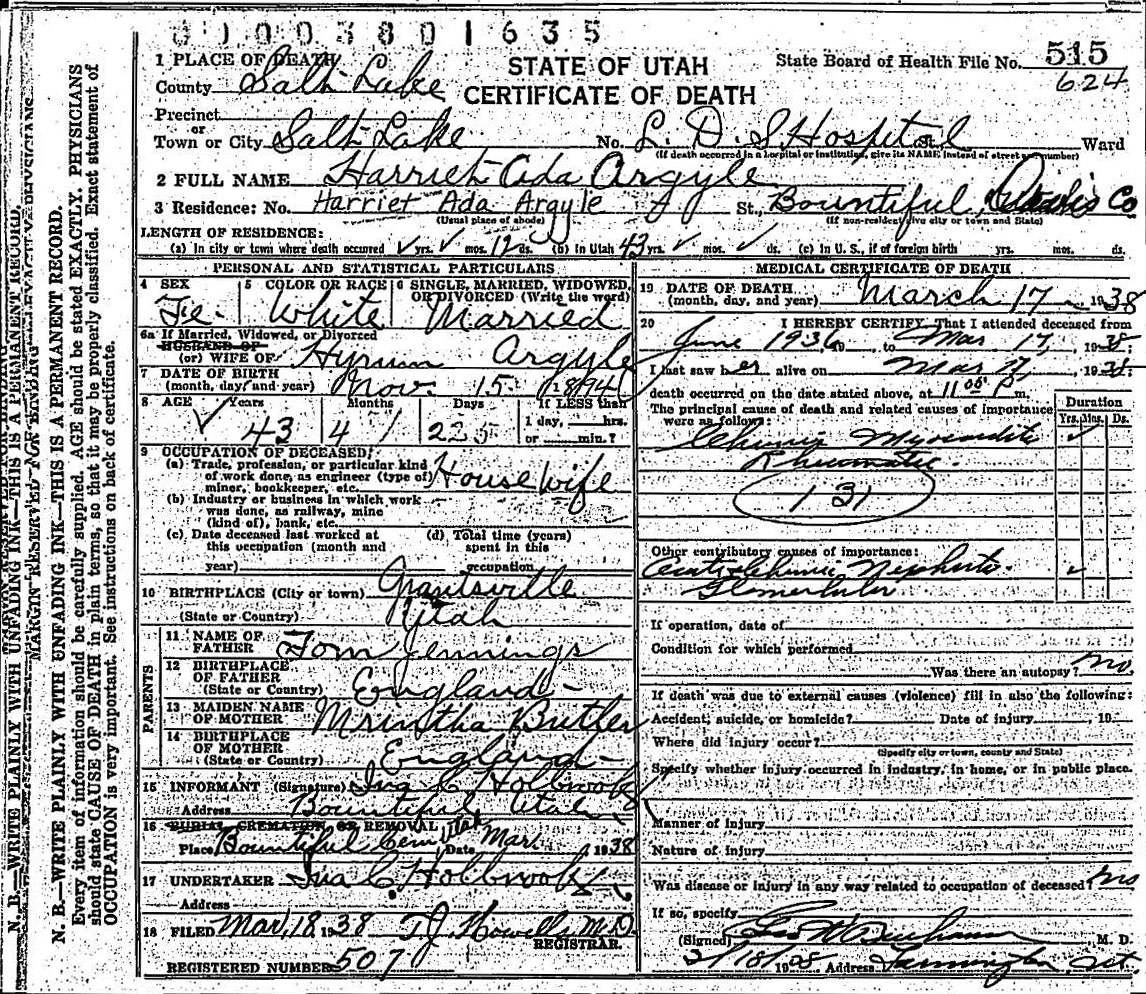 0 0 0 3 8 0 1 6 3 5
1 PLACE OF DEATH
County Salt Lake
STATE OF UTAH
CERTIFICATE OF DEATH
State Board of Health File No. 515
624
Precinct
or
Town or City Salt Lake No. L. D. S Hospital Ward
(If death occurred in a hospital or institution, give its NAME instead of street and number)
2 FULL NAME Harriet Ada Argyle
3 Residence: No. Harriet Ada Argyle St., Bountiful, Davis Co
(Usual place of abode) (If non-resident give city or town and State)
LENGTH OF RESIDENCE:
(a) In city or town where death occurred ✓ yrs. ✓ mos. 12 ds. (b) In Utah 43 yrs. ✓ mos. ✓ ds. (c) In U. S., if of foreign birth yrs. mos. ds.
PERSONAL AND STATISTICAL PARTICULARS
4 SEX 5 COLOR OR RACE 6 SINGLE, MARRIED, WIDOWED, OR DIVORCED (Write the word)
Fe- White Married
6a If Married, Widowed, or Divorced
HUSBAND OF
(or) WIFE OF Hyrum Argyle
7 DATE OF BIRTH
(month, day and year) Nov. 15 1894
8 AGE Years Months Days If LESS than
1 day, hrs.
or min.?
✓ 43 4
9 OCCUPATION OF DECEASED:
(a) Trade, profession, or particular kind
of work done, as engineer (type of)
minor, bookkeeper, etc. Housewife
(b) Industry or business in which work
was done, as railway, mine
(kind of), bank, etc.
(c) Date deceased last worked at
this occupation (month and
year)
(d) Total time (years)
spent in this
occupation
10 BIRTHPLACE (City or town) Grantsville
(State or Country) Utah
PARENTS
11 NAME OF
FATHER Tom Jennings
12 BIRTHPLACE
OF FATHER
(State or Country) England
13 MAIDEN NAME
OF MOTHER Butler
14 BIRTHPLACE
OF MOTHER
(State or Country) England
15 INFORMANT (Signature) Holbrook
Address Bountiful Utah
16 BURIAL, CREMATION, OR REMOVAL
Place Bountiful Cem Utah Date Mar. 1938
17 UNDERTAKER Holbrook
Address
18 FILED Mar. 18 1938 T. J. Howells M.D.
REGISTRAR.
REGISTERED NUMBER 507
MEDICAL CERTIFICATE OF DEATH
19 DATE OF DEATH
(month, day, and year) March 17 1938
20 I HEREBY CERTIFY, That I attended deceased from
June 1936, 19 , to Mar 17, 1938
I last saw her alive on Mar 17, 1938
death occurred on the date stated above, at 11 05 P m.
The principal cause of death and related causes of importance
were as follows:
Duration
Yrs. Mos. Ds.
Chronic Myocarditis ✓
Rheumatic
131
Other contributory causes of importance:
Chronic Nephritis
Glomerular
If operation, date of
Condition for which performed
Was there an autopsy? no.
If death was due to external causes (violence) fill in also the following:
Accident, suicide, or homicide? Date of injury , 19
Where did injury occur?
(Specify city or town, county and State)
Specify whether injury occurred in industry, in home, or in public place.
Manner of Injury
Nature of injury
Was disease or injury in any way related to occupation of deceased? no
If so, specify
(Signed) M. D.
Address Farmington, Ut.
N. B.—WRITE PLAINLY WITH UNFADING INK—THIS IS A PERMANENT RECORD.
Every item of information should be carefully supplied. AGE should be stated EXACTLY. PHYSICIANS
should state CAUSE OF DEATH in plain terms, so that it may be properly classified. Exact statement of
OCCUPATION is very important. See instructions on back of certificate.
N. B.—WRITE PLAINLY WITH UNFADING INK—THIS IS A PERMANENT RECORD.
MARGIN RESERVED FOR BINDING